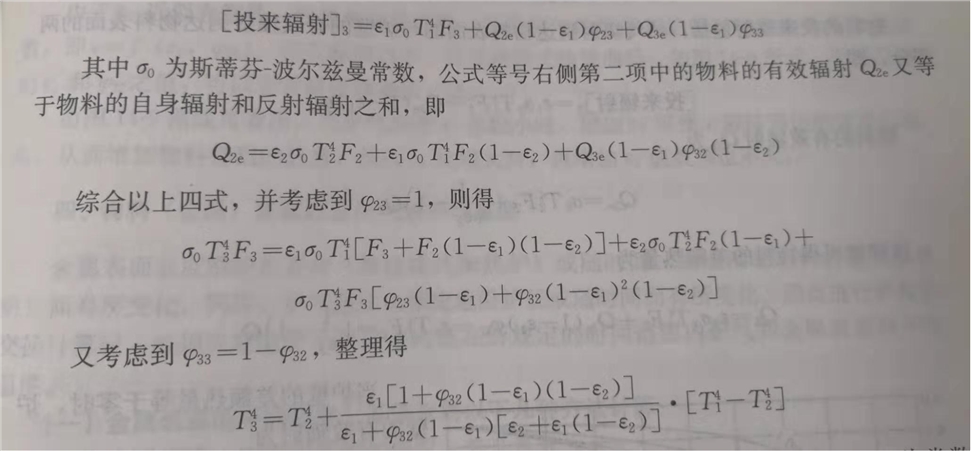 [投来辐射]₃=ε₁σ₀T₁⁴F₃+Q₂ₑ(1−ε₁)φ₂₃+Q₃ₑ(1−ε₁)φ₃₃
其中 σ₀ 为斯蒂芬-波尔兹曼常数，公式等号右侧第二项中的物料的有效辐射 Q₂ₑ 又等
于物料的自身辐射和反射辐射之和，即
Q₂ₑ=ε₂σ₀T₂⁴F₂+ε₁σ₀T₁⁴F₂(1−ε₂)+Q₃ₑ(1−ε₁)φ₃₂(1−ε₂)
综合以上四式，并考虑到 φ₂₃=1，则得
σ₀T₃⁴F₃=ε₁σ₀T₁⁴[F₃+F₂(1−ε₁)(1−ε₂)]+ε₂σ₀T₂⁴F₂(1−ε₁)+
σ₀T₃⁴F₃[φ₂₃(1−ε₁)+φ₃₂(1−ε₁)²(1−ε₂)]
又考虑到 φ₃₃=1−φ₃₂，整理得
T₃⁴=T₂⁴+\frac{ε₁[1+φ₃₂(1−ε₁)(1−ε₂)]}{ε₁+φ₃₂(1−ε₁)[ε₂+ε₁(1−ε₂)]}·[T₁⁴−T₂⁴]